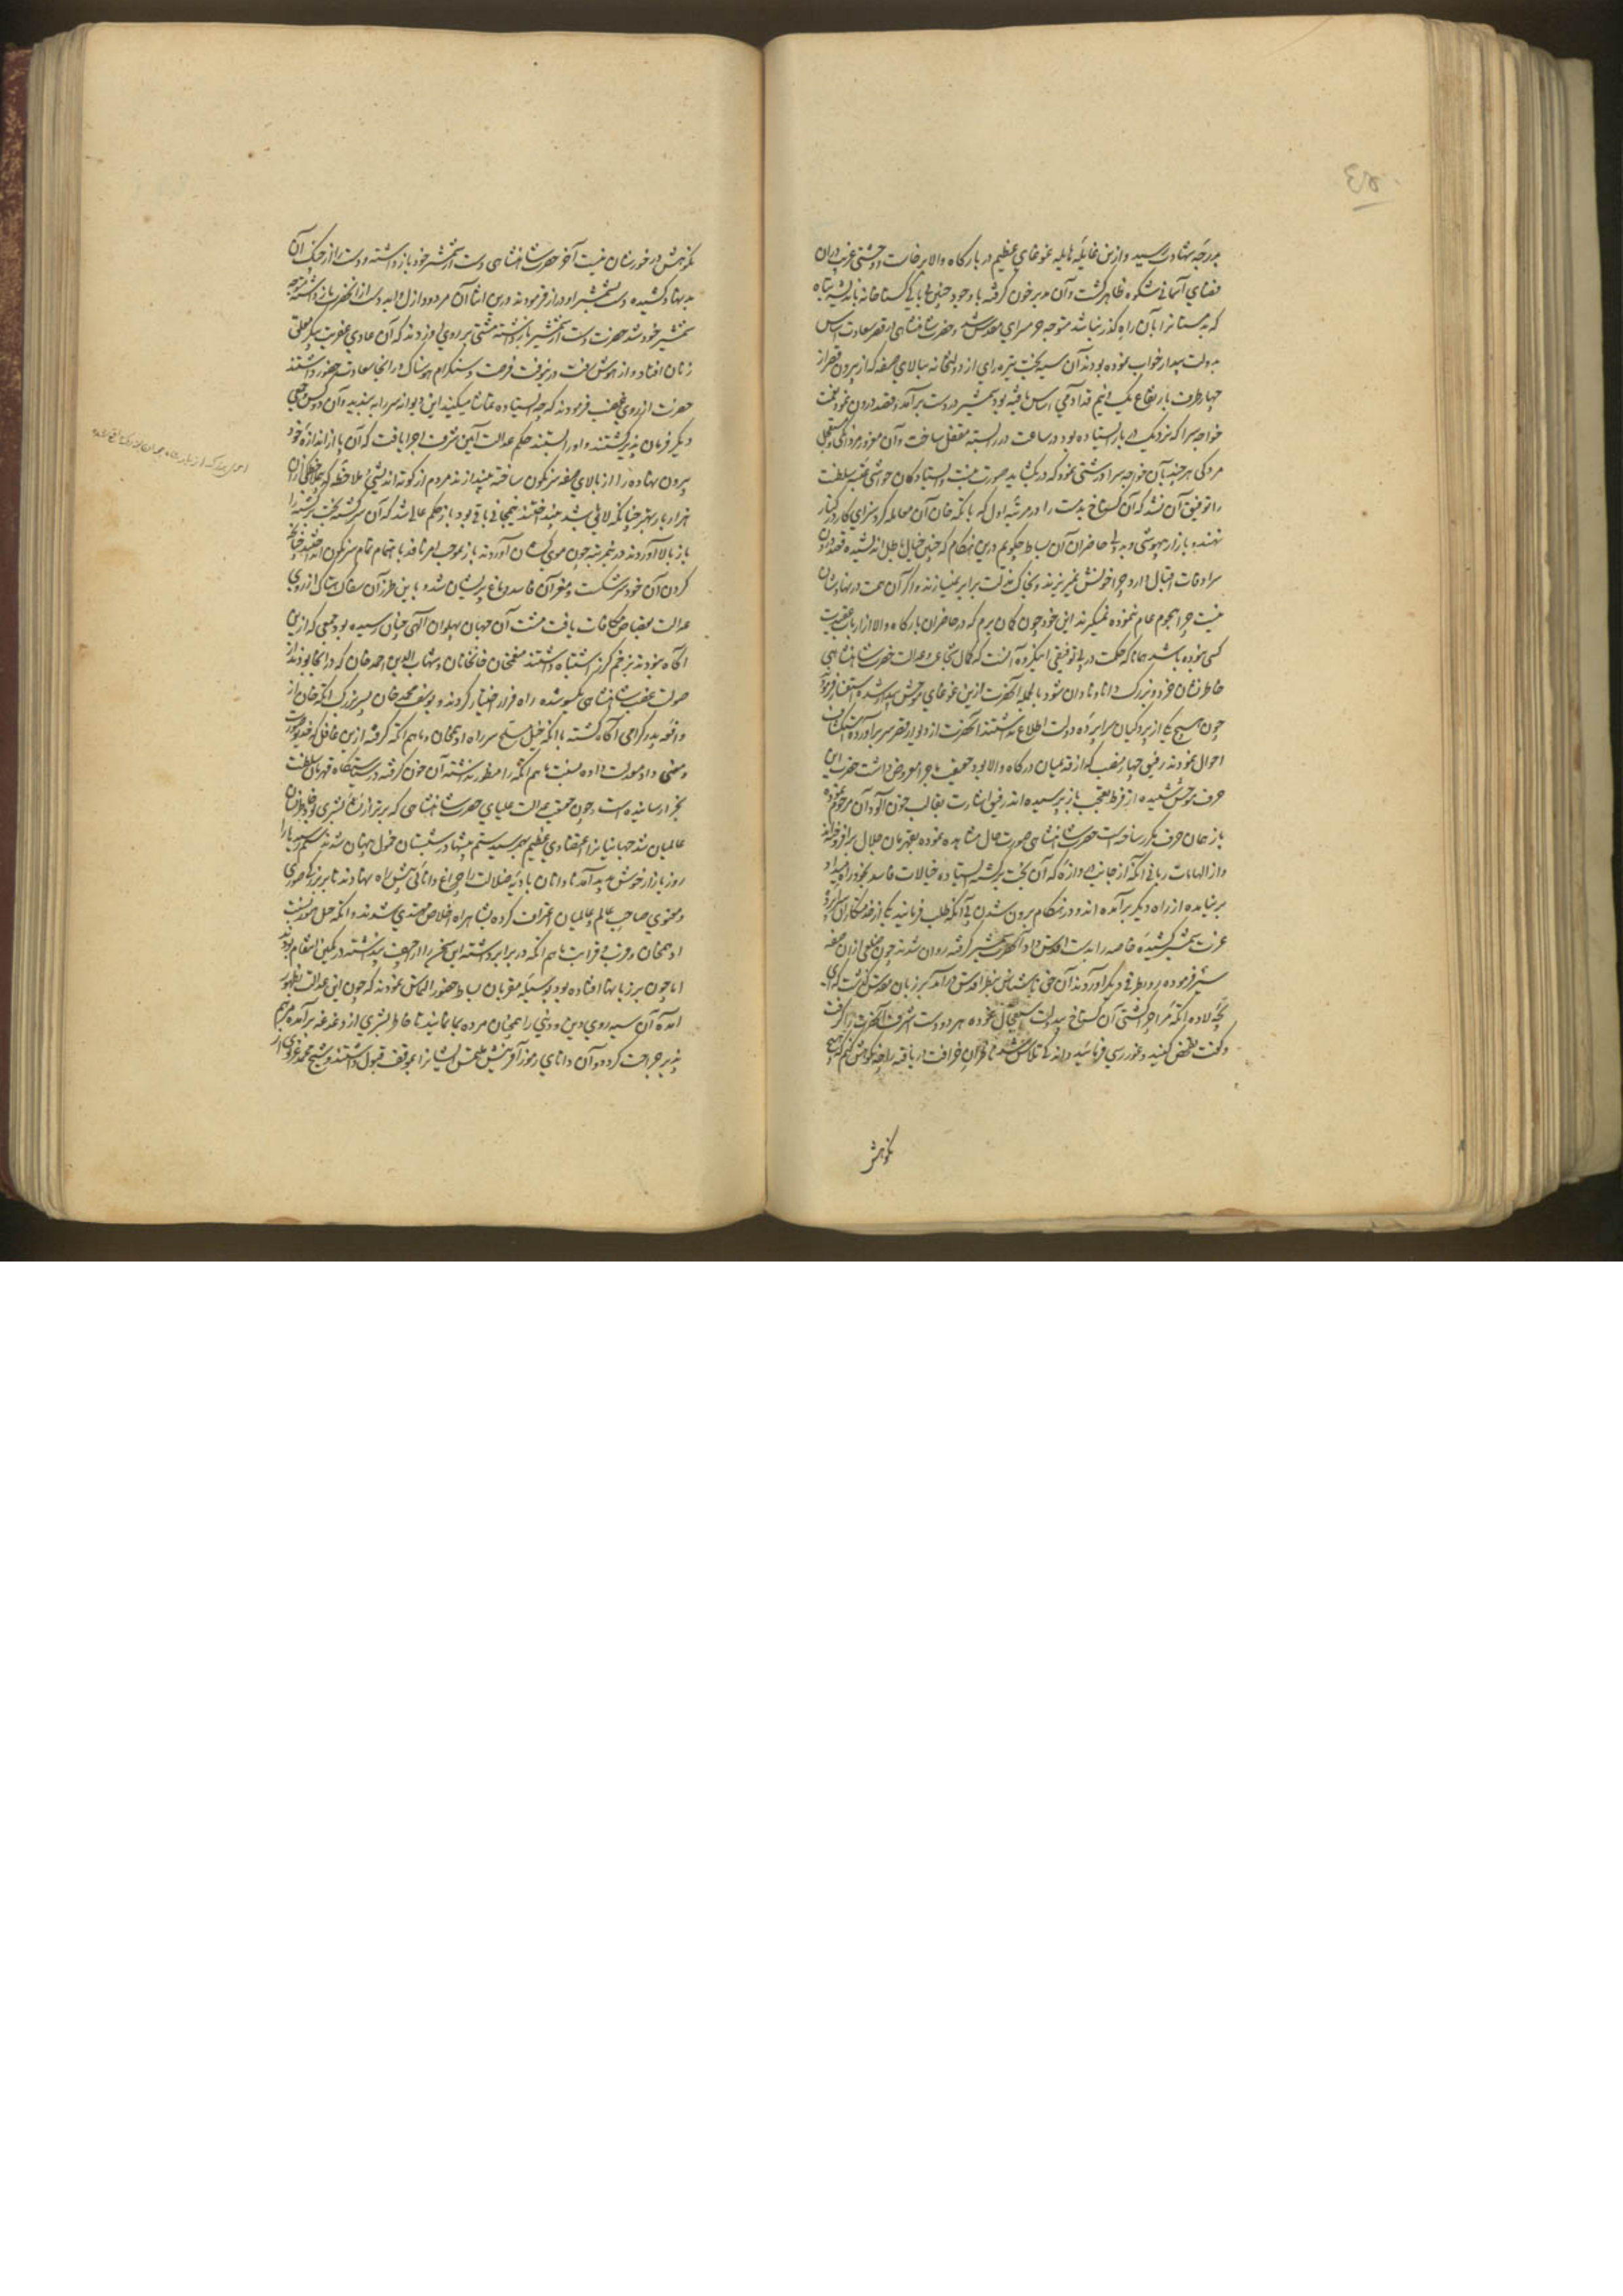 بدرجهٔ شهادت رسید و ازین غایلهٔ هایله غوغای عظیم در بارگاه والا برخاست و وحشتی غریب دران
فضای آسمانی شکوه ظاهر گشت و آن مدبر خون گرفته با وجود چنین بی باکی گستاخانه باندیشهٔ تباه
که بدمستانرا بآن راه گذر نباشد متوجه حرمسرای مقدس شد و حضرت شاهنشاهی در قصر سعادت اساس
بدولت بیدار خواب نموده بودند آن سیه بخت تیره رای از دولتخانه ببالای صفه که از بیرون قصر از
چهار طرف بارتفاع یک و نیم قد آدمی اساس یافته بود شمشیر در دست برآمد و قصد درون نمود نعمت
خواجه سرا که نزدیک در بار ایستاده بود در ساعت در را بسته مقفل ساخت و آن
مردکی هرچند بآن خواجه سرا درشتی نمود که در بگشاید صورت نبست و ایستادگان حواشی عتبهٔ سلطنت
را توفیق آن نشد که آن گستاخ بدمست را در مرتبهٔ اول که با اتکه خان آن معامله کرد سزای کار در کنار
نهند و بازار بیهوشی و بددلی حاضران آن بساط چگویم درین هنگام که چنین خیال باطل اندیشیده قصد درون
سرادقات اقبال دارد چرا خونش نمیریزند و بخاک مذلت برابر نمیسازند و اگر آن همت در نهادشان
نیست چرا هجوم عام نموده نمیگیرند این خود چون گمان برم که در حاضران بارگاه والا از ارباب عقیدت
کسی نبوده باشد همانا که حکمت در بی توفیقی این گروه آنست که کمال شجاعت و عدالت حضرت شاهنشاهی
خاطرنشان خرد و بزرگ و دانا و نادان شود بالجمله آنحضرت ازین غوغای موحش بیدار شده استفسار فرمودند
چون هیچ یکی از پردگیان سراپردهٔ دولت اطلاع نداشتند آنحضرت از دیوار قصر سر برآورده استکشاف
احوال نمودند رفیق چهار منصب که از قدیمیان درگاه والا بود حقیقت ماجرا معروض داشت حضرت این
حرف موحش شنیده از فرط تعجب باز پرسیده اند رفیق اشارت بقالب خون آلود آن مرحوم نموده
باز همان حرف مکرر ساخته است حضرت شاهنشاهی صورت حال مشاهده نموده بقهرمان جلال برافروخته اند
و از الهامات ربانی آنکه از جانب دروازه که آن بخت برگشته ایستاده خیالات فاسد بخود راه میداد
برنیامده از راه دیگر برآمده اند و در هنگام برون شدن بی آنکه طلب فرمایند یکی از خدمتکاران
عزت شمشیر کشیدهٔ خاصه را بدست اقدس داد آنحضرت شمشیر گرفته روان شدند چون ضلعی ازان صفه
سیر فرموده رو بطرفی دیگر آوردند آن حق ناشناس بنظر اقدس درآمد بر زبان مقدس گذشت که ای
بچهٔ لاده اتکهٔ مرا چرا کشتی آن گستاخ بیدولت استعجال نموده هر دو دست اشرف آنحضرت را گرفت
و گفت تفحص کنید و غوررسی فرمائید و اندک تلاش شد
نکوهش
نکوهش در خورشان نیست آخر حضرت شاهنشاهی دست از شمشیر خود باز داشته و دست را از چنگ آن
بدنهاد کشیده دست بشمشیر او دراز فرمودند درین اثنا آن مردود ازل و ابد دست از آنحضرت باز داشته متوجه
شمشیر خود شد حضرت دست از شمشیر باز داشته مشتی بر روی او زدند که آن عادی عفریت پیکر معلق
زنان افتاد و از هوش رفت درینوقت فرحت و سنکرام هوسناک در آنجا سعادت حضور داشتند
حضرت از روی غضب فرمودند که چه ایستاده تماشا میکنید این دیوانه سر را به بندید و آن دو کس و جمعی
دیگر فرمان پذیر گشتند و او را بستند حکم عدالت آیین شرف اجرا یافت که آن پا از اندازهٔ خود
بیرون نهاده را از بالای صفه سرنگون ساخته بیندازند مردم از کوته اندیشی ملاحظه
هزار بار بهتر چنانکه لایق شد نینداختند نیمجانی باقی بود باز حکم عالی شد که آن سرگشتهٔ بخت برگشته را
باز بالا آوردند درینمرتبه چون موی کشان آوردند باز بموجب امر نافذ باهتمام تمام سرنگون انداختند چنانچه
گردن آن خودسر شکست و مغز آن فاسد دماغ پریشان شد و باین طرز آن سفاک بیباک از روی
عدالت بقصاص مکافات یافت مشت آن جهان پهلوان الهی چنان رسیده بود جمعی که ازین
آگاه نبودند بزخم گرز اشتباه داشتند منعم خان خانخانان و شهاب الدین احمد خان که در آنجا بودند از
صولت غضب شاهنشاهی یکسو شده راه فرار اختیار کردند و یوسف محمد خان پسر بزرگ اتکه خان از
واقعه پدر گرامی آگاه گشته با اتکه خیل مسلح سر راه ادهم خان و ماهم اتکه گرفته ازین غافل که خدیو صورت
و معنی داد معدلت داده نسبت ماهم اتکه را منظور نداشته آن خون گرفته در سیاستگاه قهرمان سلطنت
بجزا رسانیده است و چون حقیقت عدالت علیای حضرت شاهنشاهی که برتر از نشاء بشری بود خاطرنشان
عالمیان شد جهانیانرا اعتضادی عظیم بهم رسید ستم پیشها در شبستان خمول پنهان شدند ستم رسیدها را
روز بازار خوش پدید آمد نادانان بادیهٔ ضلالت را چراغ دانائی پیش راه نهادند تا بر بزرگی صوری
و معنوی صاحب عالم و عالمیان اعتراف کرده بشاهراه اخلاص مهتدی شدند و اتکه خیل همه نسبت
ادهم خان و قرب قرابت ماهم اتکه در برابر داشته این سخن را از جمله عجب پنداشته در کمین انتقام بودند
اما چون بر زبانها افتاده بود بوسیلهٔ مقربان بساط حضور التماس نمودند که چون این عدالت بظهور
آمده آن سیه روی دین و دنیا را همچنان مرده بما نمایند تا خاطر بشری از دغدغه برآمده مرهم
پذیر جراحت گردد و آن دانای رموز آفرینش ملتمس ایشانرا بموقف قبول داشتند و شیخ محمد غزنوی را